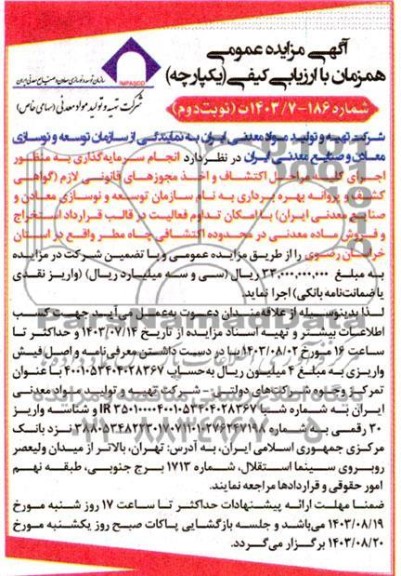 آگهی مزایده عمومی
همزمان با ارزیابی کیفی (یکپارچه)
IMPASCO
سازمان توسعه و نوسازی معادن و صنایع معدنی ایران
شرکت تهیه و تولید مواد معدنی (سهامی خاص)
شماره ۱۸۶-۱۴۰۳/۷ت (نوبت دوم)
شرکت تهیه و تولید مواد معدنی ایران به نمایندگی از سازمان توسعه و نوسازی
معادن و صنایع معدنی ایران در نظر دارد انجام سرمایه‌گذاری به منظور
اجرای کلیه مراحل اکتشاف و اخذ مجوزهای قانونی لازم (گواهی
کشف و پروانه بهره برداری به نام سازمان توسعه و نوسازی معادن و
صنایع معدنی ایران) با امکان تداوم فعالیت در قالب قرارداد استخراج
و فروش ماده معدنی در محدوده اکتشافی چاه مطر واقع در استان
خراسان رضوی را از طریق مزایده عمومی و با تضمین شرکت در مزایده
به مبلغ ۳۳,۰۰۰,۰۰۰,۰۰۰ ریال (سی و سه میلیارد ریال) (واریز نقدی
یا ضمانت‌نامه بانکی) اجرا نماید.
لذا بدینوسیله از علاقه‌مندان دعوت به‌عمل می‌آید جهت کسب
اطلاعات بیشتر و تهیه اسناد مزایده از تاریخ ۱۴۰۳/۰۷/۱۴ و حداکثر تا
ساعت ۱۶ مورخ ۱۴۰۳/۰۸/۰۲ با در دست داشتن معرفی‌نامه و اصل فیش
واریزی به مبلغ ۴ میلیون ریال به‌حساب ۴۰۰۱۰۵۳۴۰۴۰۲۸۳۶۷ با عنوان
تمرکز وجوه شرکت‌های دولتی- شرکت تهیه و تولید مواد معدنی
ایران به شماره شبا IR ۳۵۰۱۰۰۰۰۴۰۰۱۰۵۳۴۰۴۰۲۸۳۶۷ و شناسه واریز
۳۰ رقمی به شماره ۳۸۸۰۵۳۴۸۲۲۳۰۱۷۰۷۱۱۰۱۰۲۷۶۲۴۷۱۹۸ نزد بانک
مرکزی جمهوری اسلامی ایران، به آدرس: تهران، بالاتر از میدان ولیعصر
روبروی سینما استقلال، شماره ۱۷۱۳ برج جنوبی، طبقه نهم
امور حقوقی و قراردادها مراجعه نمایند.
ضمنا مهلت ارائه پیشنهادات حداکثر تا ساعت ۱۷ روز شنبه مورخ
۱۴۰۳/۰۸/۱۹ می‌باشد و جلسه بازگشایی پاکات صبح روز یکشنبه مورخ
۱۴۰۳/۰۸/۲۰ برگزار می‌گردد.